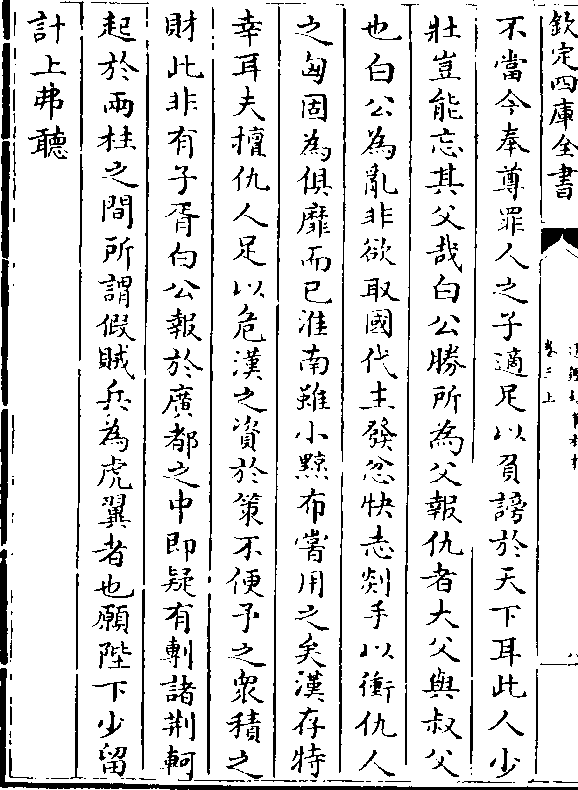 欽定四庫全書
卷二上
不當今奉尊罪人之子適足以負謗於天下耳此人少
壯豈能忘其父哉白公勝所為父報仇者大父與叔父
也白公為亂非欲取國代主發忿快志剡手以衝仇人
之匈固為俱靡而已淮南雖小黥布嘗用之矣漢存特
幸耳夫擅仇人足以危漢之資於策不便予之衆積之
財此非有子胥白公報於廣都之中即疑有剸諸荆軻
起於兩柱之間所謂假賊兵為虎翼者也願陛下少留
計上弗聽